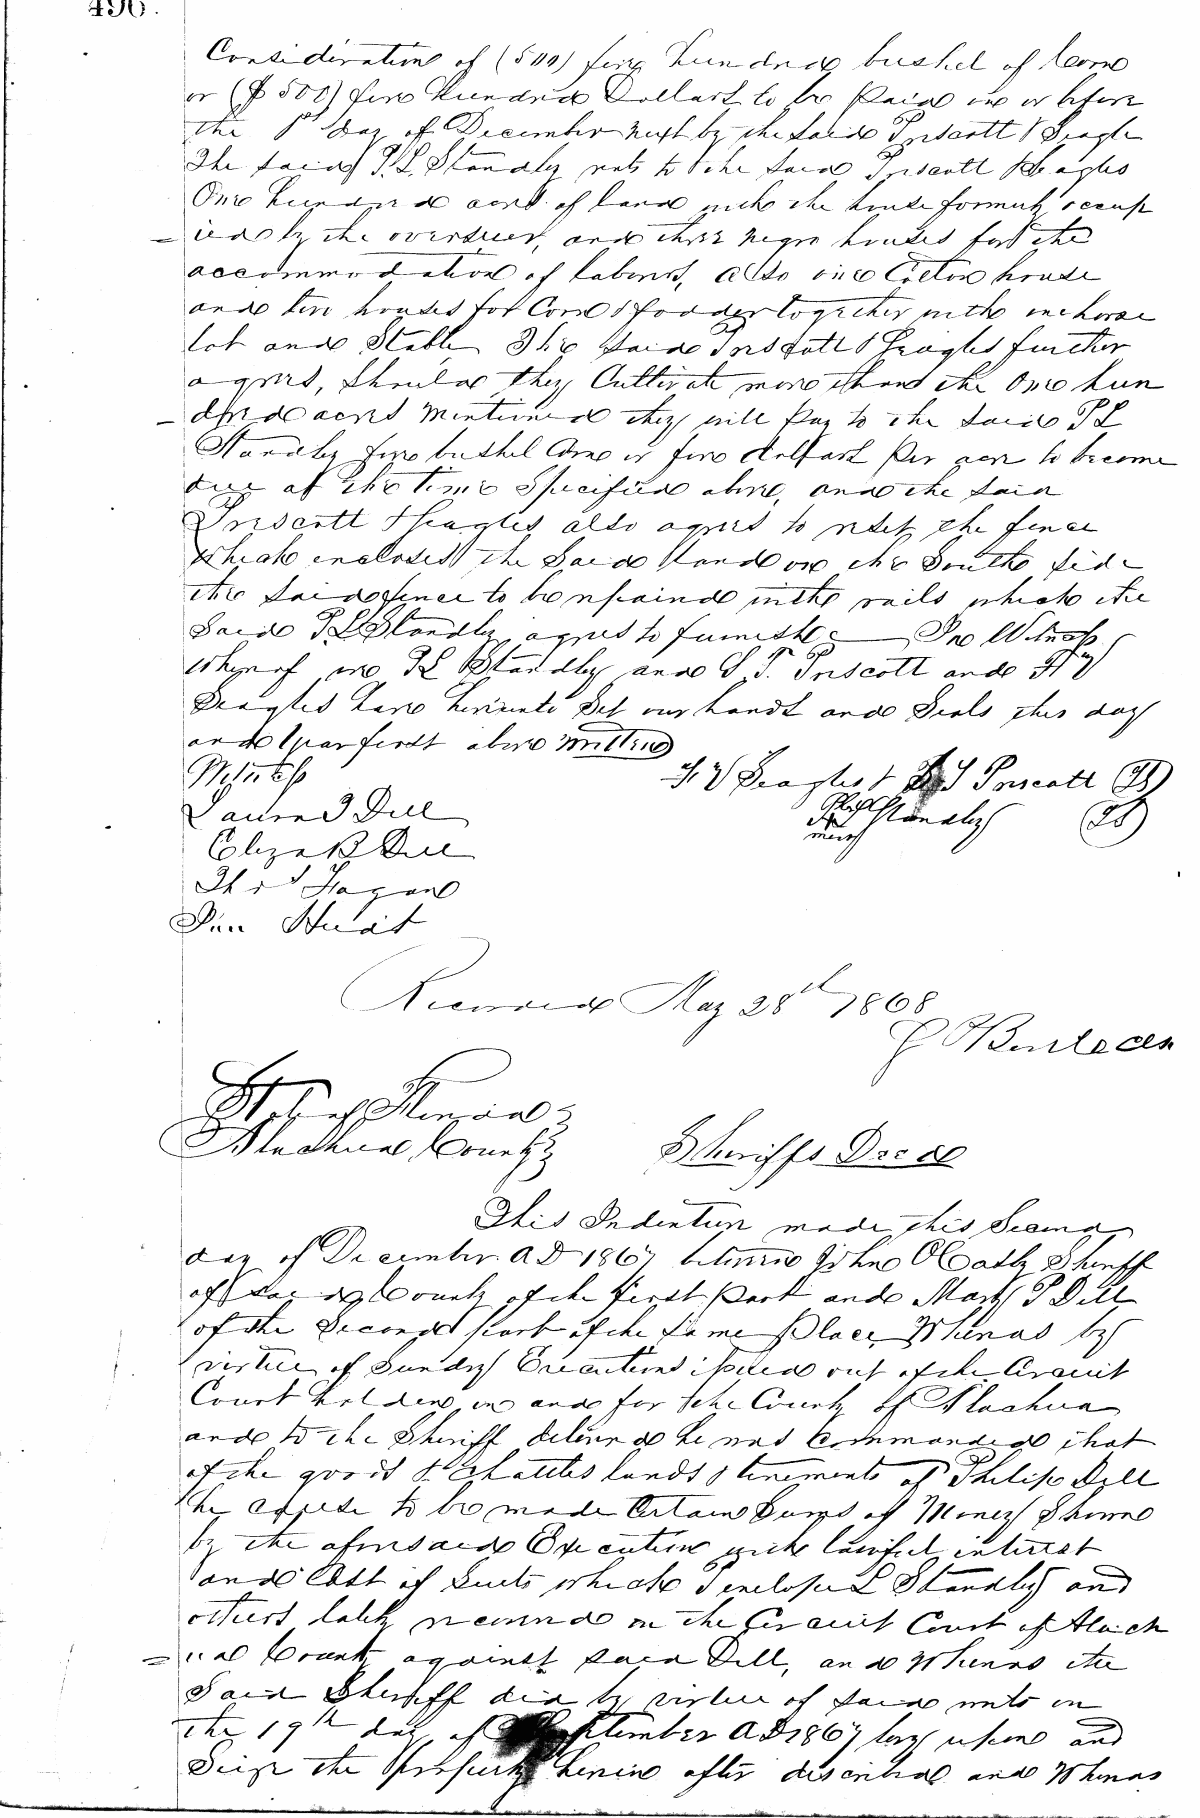 496.
Consideration of (500) five hundred bushel of Corn
or ($500) five hundred Dollars to be paid on or before
the 1st day of December next by the said Priscott & Seagle
The said P.L. Standley rents to the said Priscott & Seagles
One hundred acres of land with the house formerly occup
=ied by the overseer, and three negro houses for the
accommodation of laborers, also one Cotton house
and two houses for Corn & fodder together with one horse
lot and Stable The said Priscott & Seagles further
agrees, should they Cultivate more than the One hun
-dred acres mentioned they will pay to the said P L
Standley five bushel Corn or five dollars per acre to become
due at the time Specified above, and the said
Priscott & Seagles also agrees to reset the fence
which encloses the said land on the South side
the said fence to be repaired with rails which the
said P L Standley agrees to furnish In Witness
whereof we P L Standley and S. T. Priscott and H y
Seagles have hereunto set our hands and Seals this day
and year first above written
Witness H Y Seagles & S T Priscott
Laura J Dell Standley
Eliza B Dell
Thos Fagan
Recorded May 28th 1868
State of Florida
Alachua County Sheriffs Deed
This Indenture made this Second
day of December AD 1867 between John O Cathy Sheriff
of said County of the first part and Mary P Dell
of the second part of the same place Whereas by
virtue of Sundry Executions issued out of the Circuit
Court holden in and for the County of Alachua
and to the Sheriff delivered he was commanded that
of the goods & chattles lands & tenements of Philip Dell
he cause to be made Certain Sums of Money Shown
by the aforesaid Execution with lawful interest
and Cost of Suits which Penelope L Standley and
others lately recovered in the Circuit Court of Alach
=ua County against said Dell, and Whereas the
Said Sheriff did by virtue of said writs on
the 19th day of September AD 1867 levy upon and
Seize the property herein after described and Whereas